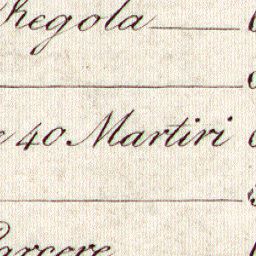 Regola
e 40 Martiri
Carcere